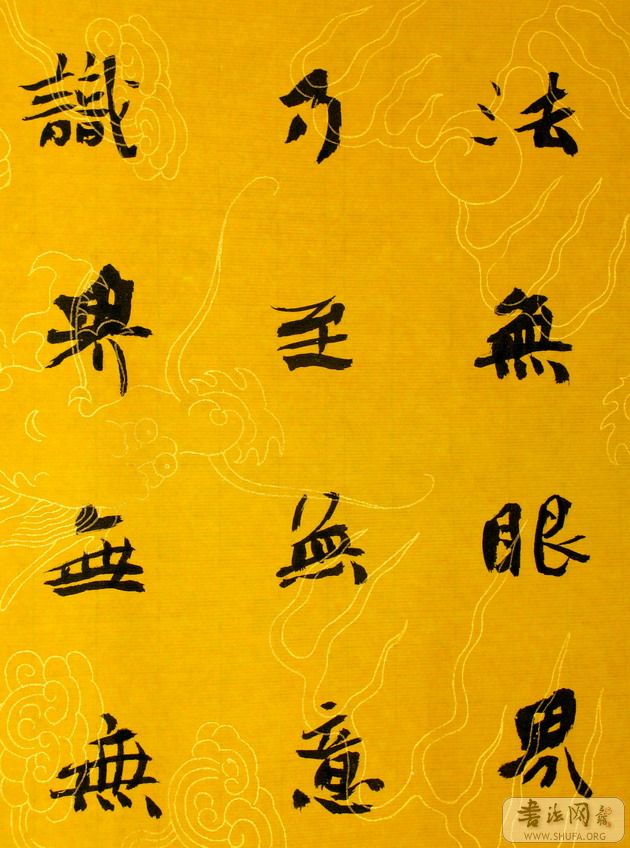 法無眼界
乃至無意
識界無無
书法网
WWW.SHUFA.ORG